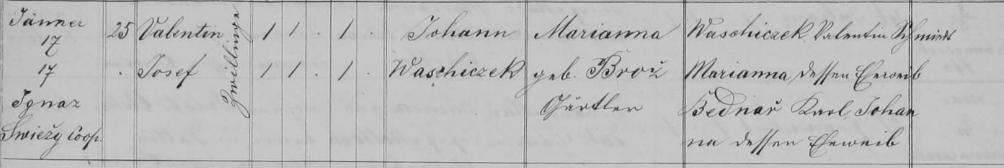 Jänner 25 Valentin Zwillinge 1 1 . 1 . Johann Marianna Waschiczek Valentin Schmied
17
17 . Josef 1 1 . 1 . Waschiczek geb. Brož Marianna dessen Eheweib
Ignaz Gärtler Bednař Karl Johan
Swiežy Coop. na dessen Eheweib